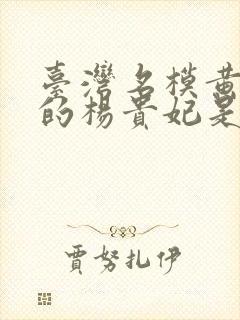 臺灣名模黃
的楊貴妃是
賈努扎伊